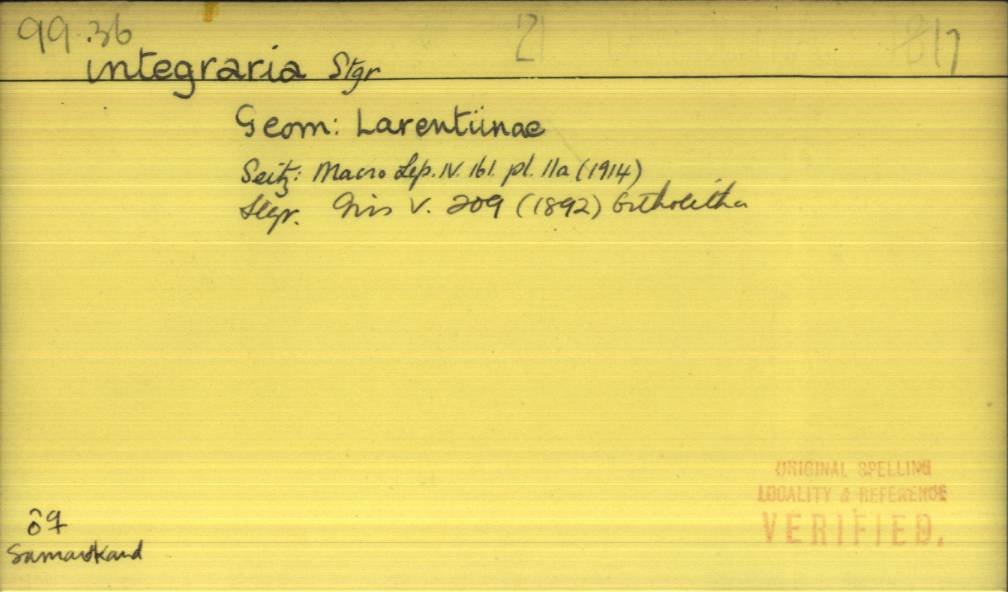 99.36
21
817
integraria Stgr
Geom: Larentiinae
Seitz: Macro Lep. IV. 161. pl. 11a (1914)
Stgr. Iris V. 209 (1892) Ortholitha
ORIGINAL SPELLING
LOCALITY & REFERENCE
VERIFIED.
♂♀
Samarkand